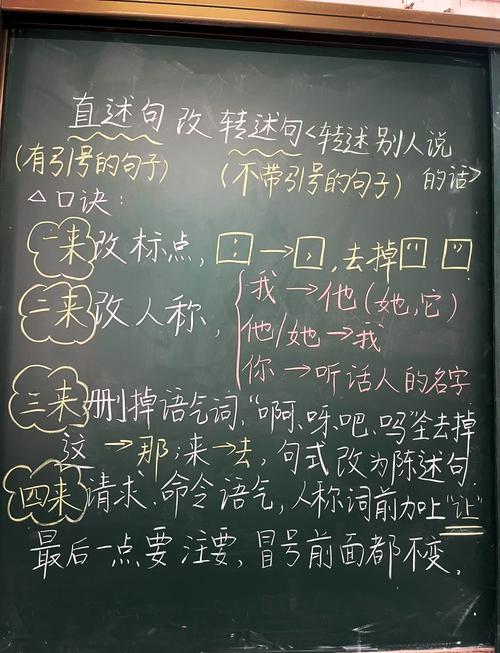 直述句改转述句<转述别人说
(有引号的句子) (不带引号的句子) 的话>
△口诀:
一来改标点, : → , , 去掉“ ”
二来改人称, 我→他(她,它)
他/她→我
你→听话人的名字
三来删掉语气词,“啊、呀、吧、吗”全去掉
这→那;来→去,句式改为陈述句
四来请求、命令语气,人称词前加上“让”
最后一点要注要,冒号前面都不变。